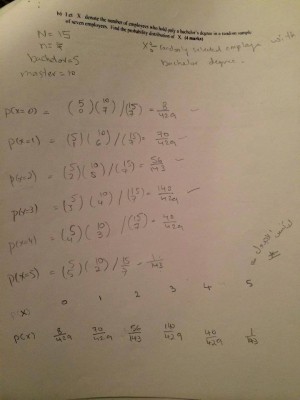 b) Let X denote the number of employees who hold only a bachelor's degree in a random sample
of seven employees. Find the probability distribution of X. (4 marks)
N=15
n=7
bachelor=5
master=10
X= randomly selected employee with
bachelor degree.
P(x=0) = (5 0)(10 7)/(15 7) = 8/429
P(x=1) = (5 1)(10 6)/(15 7) = 70/429
P(x=2) = (5 2)(10 5)/(15 7) = 56/143
P(x=3) = (5 3)(10 4)/(15 7) = 140/429
P(x=4) = (5 4)(10 3)/(15 7) = 40/429
P(x=5) = (5 5)(10 2)/15 7 = 1/143
X 0 1 2 3 4 5
P(x) 8/429 70/429 56/143 140/429 40/429 1/143